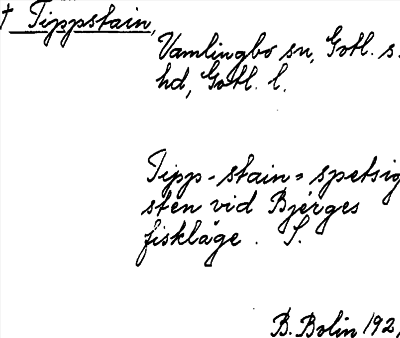 † Tippstain,
Vamlingbo sn, Gotl. s.
hd, Gotl. l.
Tipp-stain = spetsig
sten vid Bjerges
fiskläge. S.
B. Bolin 192